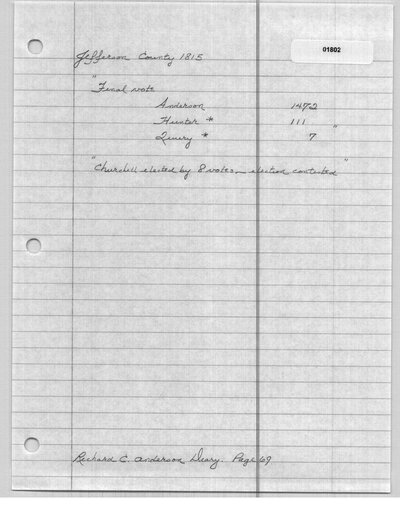 01802
Jefferson County 1815
"Final vote
Anderson 1472
Hunter * 111 "
Quiry * 7
"Churchill elected by 8 votes – election contested"
Richard C. Anderson Diary. Page 69